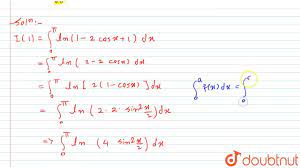 Solⁿ:-
I(1) = ∫₀^π ln(1-2 cosx+1) dx
= ∫₀^π ln(2-2 cosx) dx
= ∫₀^π ln[2(1-cosx)] dx
= ∫₀^π ln(2·2·sin² x/2) dx
∫₀^a f(x) dx = ∫₀
=> ∫₀^π ln (4 sin² x/2) dx
doubtnut